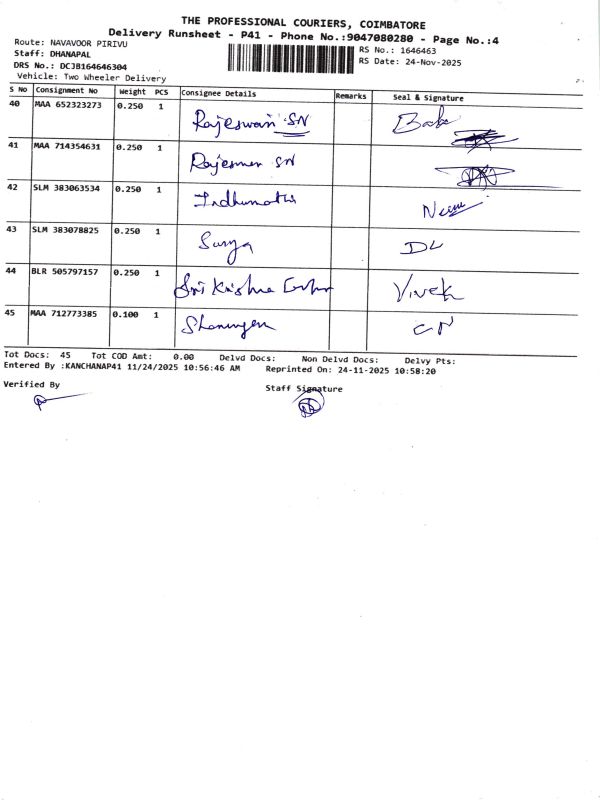 THE PROFESSIONAL COURIERS, COIMBATORE
Delivery Runsheet - P41 - Phone No.:9047080280 - Page No.:4
Route: NAVAVOOR PIRIVU
RS No.: 1646463
Staff: DHANAPAL
RS Date: 24-Nov-2025
DRS No.: DCJB164646304
Vehicle: Two Wheeler Delivery
S No Consignment No Weight PCS Consignee Details Remarks Seal & Signature
40 MAA 652323273 0.250 1 Rajeswari SN
41 MAA 714354631 0.250 1 SN
42 SLM 383063534 0.250 1 Indhumathi
43 SLM 383078825 0.250 1 Surya DL
44 BLR 505797157 0.250 1 Sri Krishna Vivek
45 MAA 712773385 0.100 1 CN
Tot Docs: 45 Tot COD Amt: 0.00 Delvd Docs: Non Delvd Docs: Delvy Pts:
Entered By :KANCHANAP41 11/24/2025 10:56:46 AM Reprinted On: 24-11-2025 10:58:20
Verified By
Staff Signature